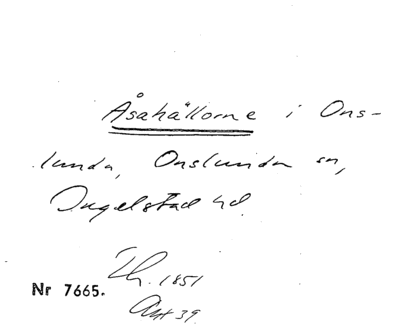 Åsahällorne i Ons-
lunda, Onslunda sn,
Ingelstad hd.
Th. 1851
Nr 7665.
Akt 39